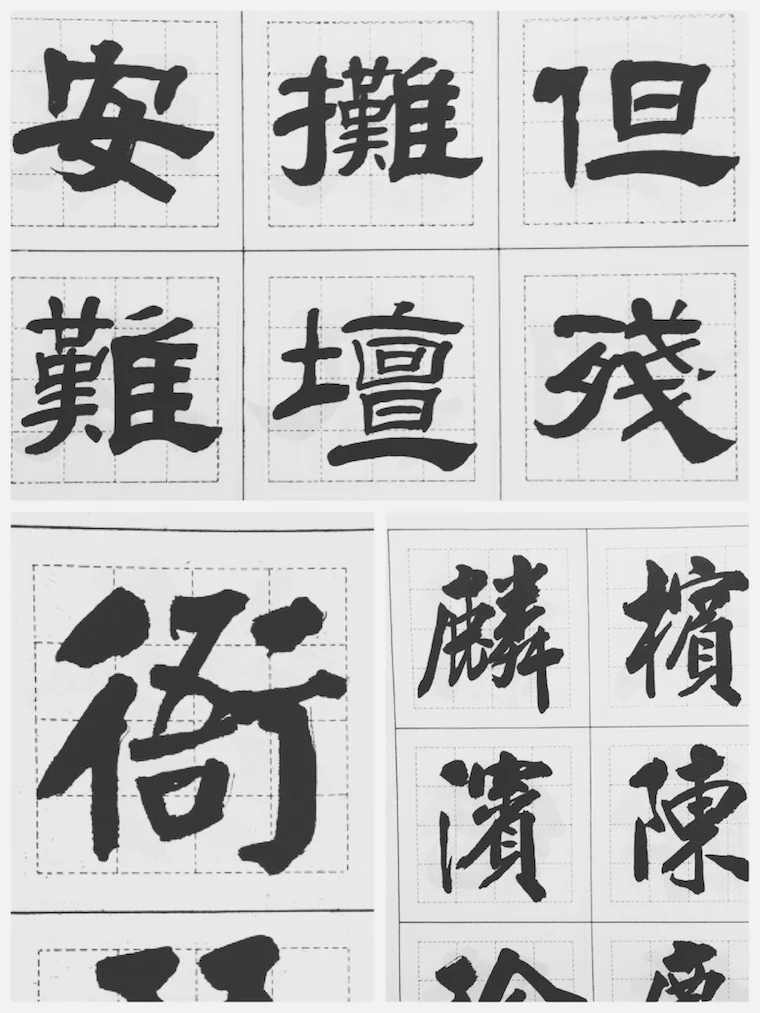 安攤但
難壇殘
衙
麟檳
濱陳